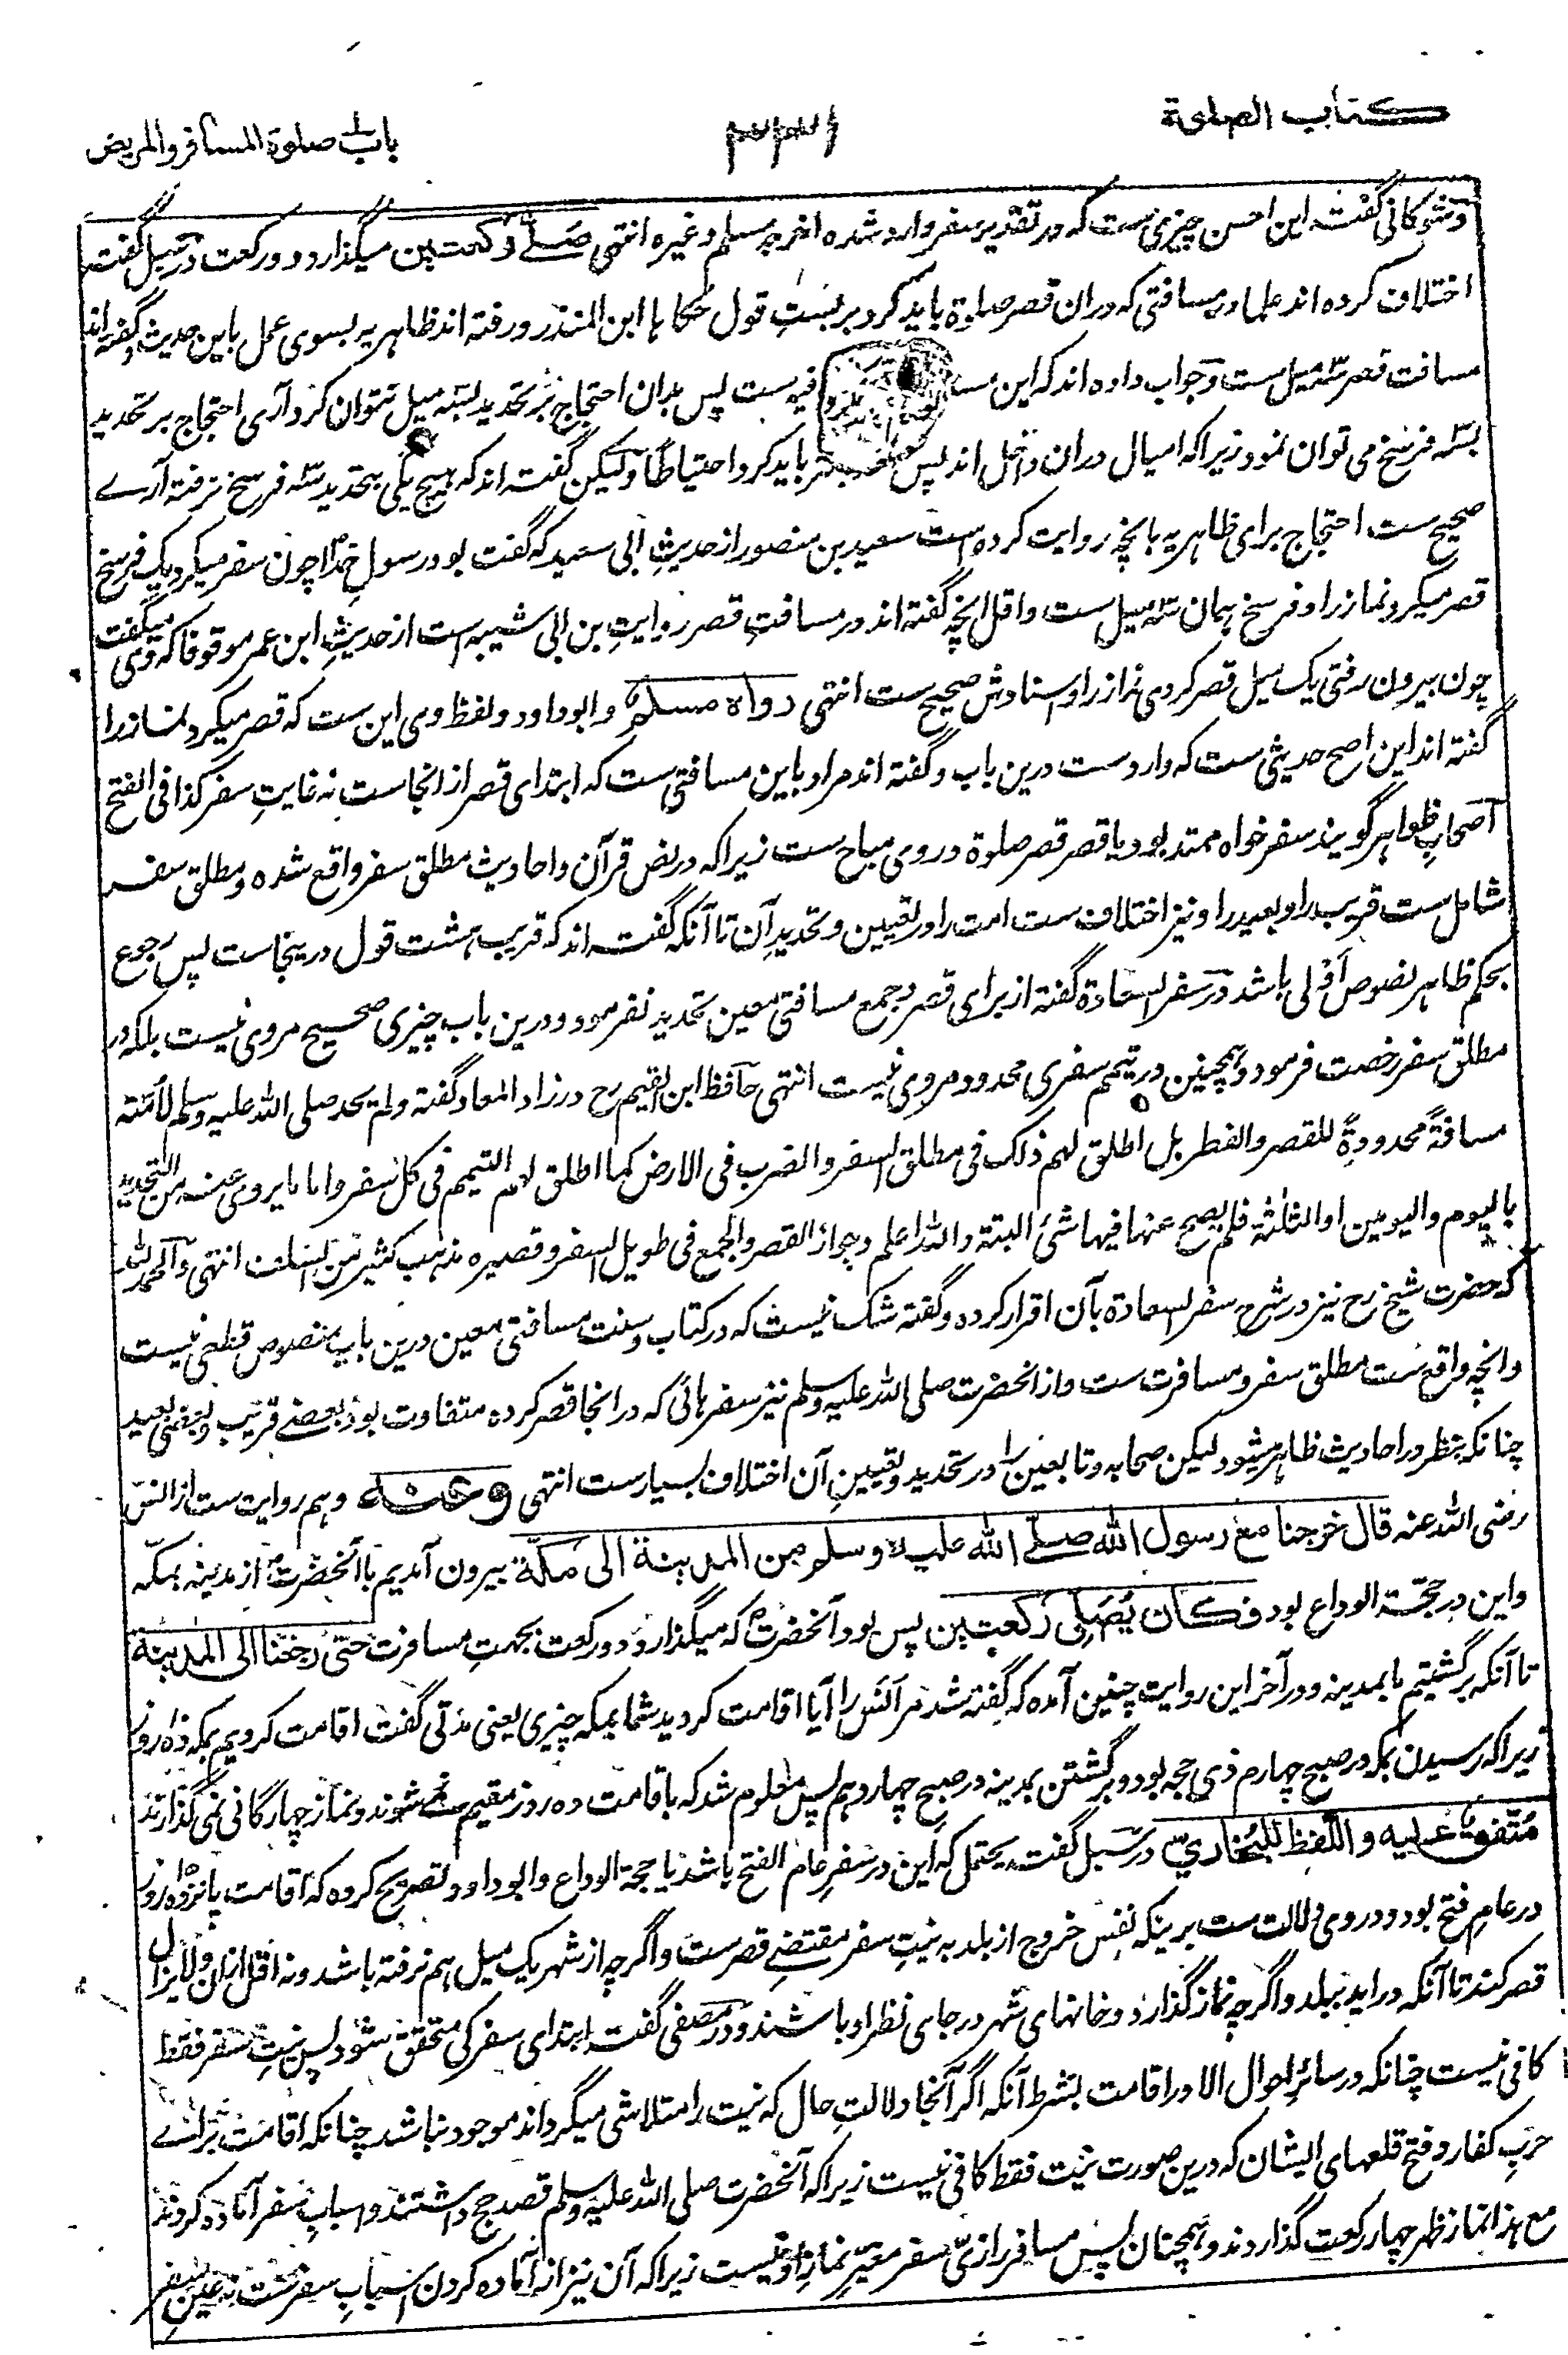 کتاب الصلوة
باب صلوة المسافر والمریض
وشوکانی گفته این احسن چیزی ست که در تقدیر سفر وارد شده اخرجه مسلم وغیره انتهی صلی رکعتین میگذارد دو رکعت در سبل گفته
اختلاف کرده اند علما در مسافتی که دران قصر صلوة باید کرد بر بست قول حکاها ابن المنذر ورفته اند ظاهریه بسوی عمل باین حدیث وگفته اند
مسافت قصر سه میل ست وجواب داده اند که این فیه ست پس بدان احتجاج بر تحدید بسه میل نتوان کرد آری احتجاج بر تحدید
بسه فرسخ می توان نمود زیرا که امیال دران داخل اند پس باید کرد احتیاطا ولیکن گفته اند که هیچ یکی بتحدید سه فرسخ نرفته آرے
صحیح ست احتجاج برای ظاهریه بانچه روایت کرده است سعید بن منصور از حدیث ابی سعید که گفت بود رسول خدا چون سفر میکرد یک فرسخ
قصر میکرد نماز را وفرسخ همان سه میل ست واقل انچه گفته اند در مسافت قصر روایت بن ابی شیبه است از حدیث ابن عمر موقوفا که وی میگفت
چون بیرون رفتی یک میل قصر کردی نماز را واسنادش صحیح ست انتهی رواه مسلم وابوداود ولفظ وی این ست که قصر میکرد نماز را
گفته اند این اصح حدیثی ست که وارد ست درین باب وگفته اند مراد باین مسافتی ست که ابتدای قصر از انجاست نه غایت سفر کذا فی الفتح
اصحاب ظواهر گویند سفر خواه ممتد بود یا قصر قصر صلوة در وی مباح ست زیرا که در نص قرآن واحادیث مطلق سفر واقع شده ومطلق سفر
شامل ست قریب را وبعید را ونیز اختلاف ست امت را در تعیین وتحدید آن تا آنکه گفته اند که قریب هشت قول درینجاست پس رجوع
بحکم ظاهر نصوص اولی باشد در سفر السعادة گفته از برای قصر وجمع مسافتی معین تحدید نفرمود ودرین باب چیزی صحیح مروی نیست بلکه در
مطلق سفر رخصت فرمود وهمچنین در تیمم سفری محدود مروی نیست انتهی حافظ ابن القیم رح در زاد المعاد گفته ولم یحد صلی الله علیه وسلم لأمته
مسافةً محدودةً للقصر والفطر بل اطلق لهم ذلک فی مطلق السفر والضرب فی الارض کما اطلق لهم التیمم فی کل سفر واما ما یروی عنه من التحدید
بالیوم والیومین اوالثلثة فلم یصح عنها فیها شیٔ البتة والله اعلم وجواز القصر والجمع فی طویل السفر وقصیره مذهب کثیر من السلف انتهی والحمد لله
که حضرت شیخ رح نیز در شرح سفر السعادة بآن اقرار کرده وگفته شک نیست که در کتاب وسنت مسافتی معین درین باب منصوص قطعی نیست
وانچه واقع ست مطلق سفر ومسافرت ست واز انحضرت صلی الله علیه وسلم نیز سفرهائی که در انجا قصر کرده متفاوت بود بعضے قریب وبعضی بعید
چنانکه بنظر در احادیث ظاهر میشود لیکن صحابه وتابعین را در تحدید وتعیین آن اختلاف بسیار ست انتهی وعنه وهم روایت ست از انس
رضی الله عنه قال خرجنا مع رسول الله صلی الله علیه وسلم من المدینة الی مکة بیرون آمدیم با آنحضرت از مدینه بمکه
واین در حجة الوداع بود فکان یصلی رکعتین پس بود آنحضرت که میگذارد دو رکعت بجهت مسافرت حتی رجعنا الی المدینة
تا آنکه برگشتیم ما بمدینه ودر آخر این روایت چنین آمده که گفته شد مر انس را آیا اقامت کردید شما بمکه چیزی یعنی مدتی گفت اقامت کردیم بمکه ده روز
زیرا که رسیدن بمکه در صبح چهارم ذی حجه بود وبرگشتن بمدینه در صبح چهاردهم پس معلوم شد که باقامت ده روز مقیم نمے شوند ونماز چهارگانی نمی گذارند
متفق علیه واللفظ للبخاری در سبل گفته یحتمل که این در سفر عام الفتح باشد یا حجة الوداع وابوداود تصریح کرده که اقامت پانزده روز
در عام فتح بود ودر وی دلالت ست برینکه نفس خروج از بلد به نیت سفر مقتضے قصر ست واگرچه از شهر یک میل هم نرفته باشد ونه اقل ازان ولایزال
قصر کند تا آنکه دراید ببلد واگرچه نماز گذارد وخانهای شهر در جای نظر او باشند ودر مصفی گفت ابتدای سفر کی متحقق شود پس نیت سفر فقط
کافی نیست چنانکه در سائر احوال الا در اقامت بشرط آنکه اگر آنجا دلالت حال که نیت را متلاشی میگرداند موجود نباشد چنانکه اقامت برائے
حرب کفار وفتح قلعهای ایشان که درین صورت نیت فقط کافی نیست زیرا که آنحضرت صلی الله علیه وسلم قصد حج داشتند واسباب سفر آماده کردند
مع هذا نماز ظهر چهار رکعت گذاردند وهمچنان پس مسافر را زی سفر مغیر نماز او نیست زیرا که آن نیز از آماده کردن اسباب سفرست نه عین سفر